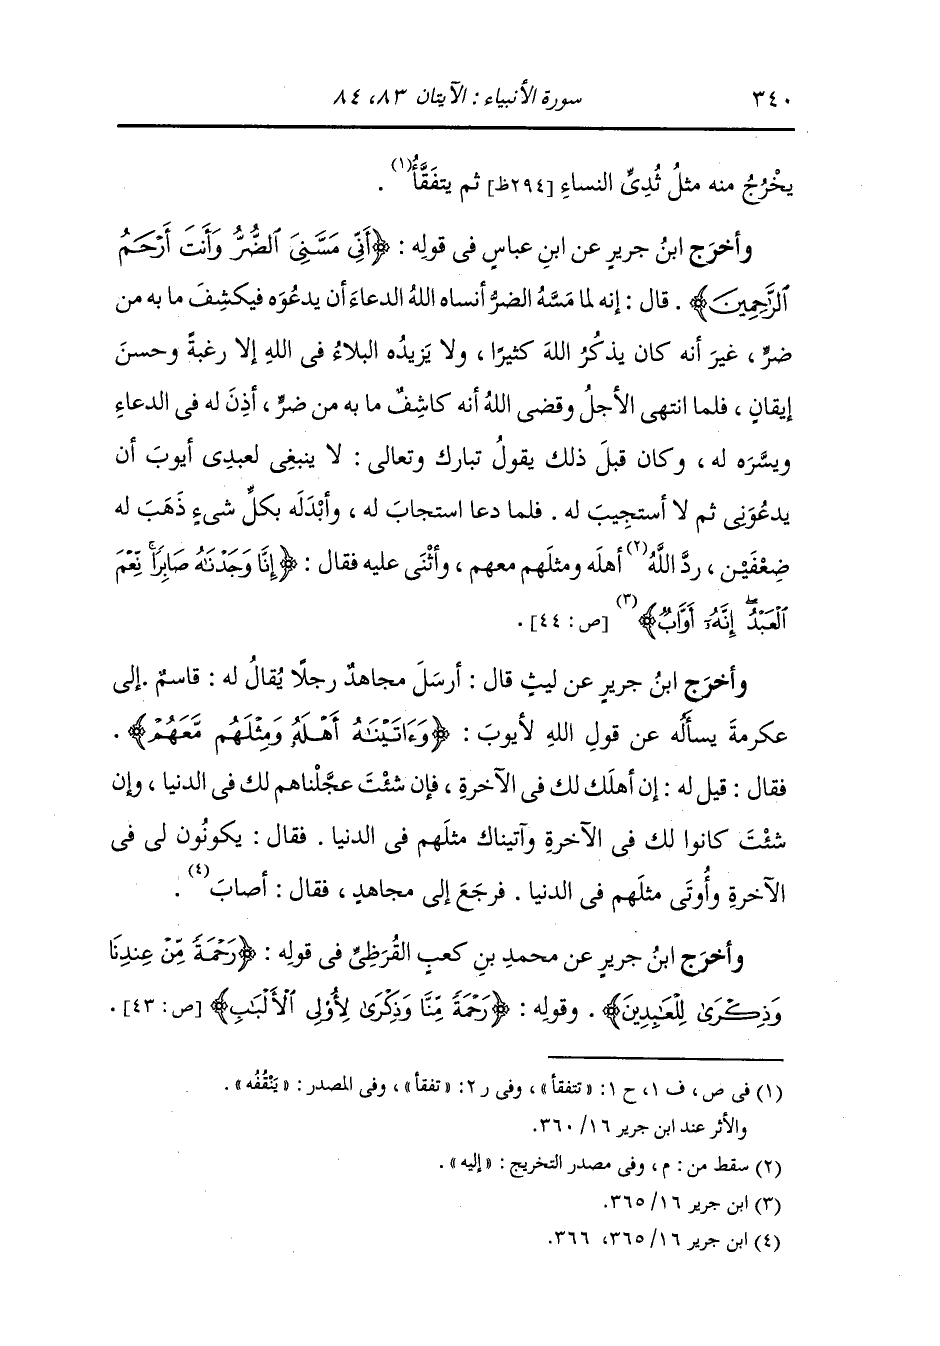 ٣٤٠ سورة الأنبياء : الآيتان ٨٣، ٨٤
يخْرُجُ منه مثلُ ثُدِىِّ النساءِ [٢٩٤ظ] ثم يتفَقَّأُ(١) .
وأخرَج ابنُ جريرٍ عن ابنِ عباسٍ فى قولِه : ﴿أَنِّى مَسَّنِىَ ٱلضُّرُّ وَأَنتَ أَرْحَمُ
ٱلرَّٰحِمِينَ﴾ . قال : إنه لما مَسَّهُ الضرُّ أنساه اللهُ الدعاءَ أن يدعُوَه فيكشِفَ ما به من
ضرٍّ ، غيرَ أنه كان يذكُرُ اللهَ كثيرًا ، ولا يَزيدُه البلاءُ فى اللهِ إلا رغبةً وحسنَ
إيقانٍ ، فلما انتهى الأجلُ وقضى اللهُ أنه كاشِفٌ ما به من ضرٍّ ، أذِنَ له فى الدعاءِ
ويسَّرَه له ، وكان قبلَ ذلك يقولُ تبارك وتعالى : لا ينبغِى لعبدِى أيوبَ أن
يدعُوَنِى ثم لا أستجِيبَ له . فلما دعا استجابَ له ، وأبْدَلَه بكلِّ شىءٍ ذَهَبَ له
ضِعْفَيْن ، ردَّ اللَّهُ(٢) أهلَه ومثلَهم معهم ، وأثْنَى عليه فقال : ﴿إِنَّا وَجَدْنَٰهُ صَابِرًا ۚ نِّعْمَ
ٱلْعَبْدُ ۖ إِنَّهُۥٓ أَوَّابٌ﴾(٣) [ص : ٤٤] .
وأخرَج ابنُ جريرٍ عن ليثٍ قال : أرسَلَ مجاهدٌ رجلًا يُقالُ له : قاسمٌ . إلى
عكرمةَ يسألُه عن قولِ اللهِ لأيوبَ : ﴿وَءَاتَيْنَٰهُ أَهْلَهُۥ وَمِثْلَهُم مَّعَهُمْ﴾ .
فقال : قيل له : إن أهلَك لك فى الآخرةِ ، فإن شئْتَ عجَّلْناهم لك فى الدنيا ، وإن
شئْتَ كانوا لك فى الآخرةِ وآتيناك مثلَهم فى الدنيا . فقال : يكونُون لى فى
الآخرةِ وأُوتَى مثلَهم فى الدنيا . فرجَعَ إلى مجاهدٍ ، فقال : أصابَ(٤) .
وأخرَج ابنُ جريرٍ عن محمدِ بنِ كعبٍ القُرَظِىِّ فى قولِه : ﴿رَحْمَةً مِّنْ عِندِنَا
وَذِكْرَىٰ لِلْعَٰبِدِينَ﴾ . وقولِه : ﴿رَحْمَةً مِّنَّا وَذِكْرَىٰ لِأُو۟لِى ٱلْأَلْبَٰبِ﴾ [ص : ٤٣] .
(١) فى ص ، ف ١، ح ١: «تتفقأ» ، وفى ر ٢: «تفقأ» ، وفى المصدر : «يَنْقُفُه» .
والأثر عند ابن جرير ١٦/ ٣٦٠.
(٢) سقط من : م ، وفى مصدر التخريج : «إليه» .
(٣) ابن جرير ١٦/ ٣٦٥.
(٤) ابن جرير ١٦/ ٣٦٥، ٣٦٦.